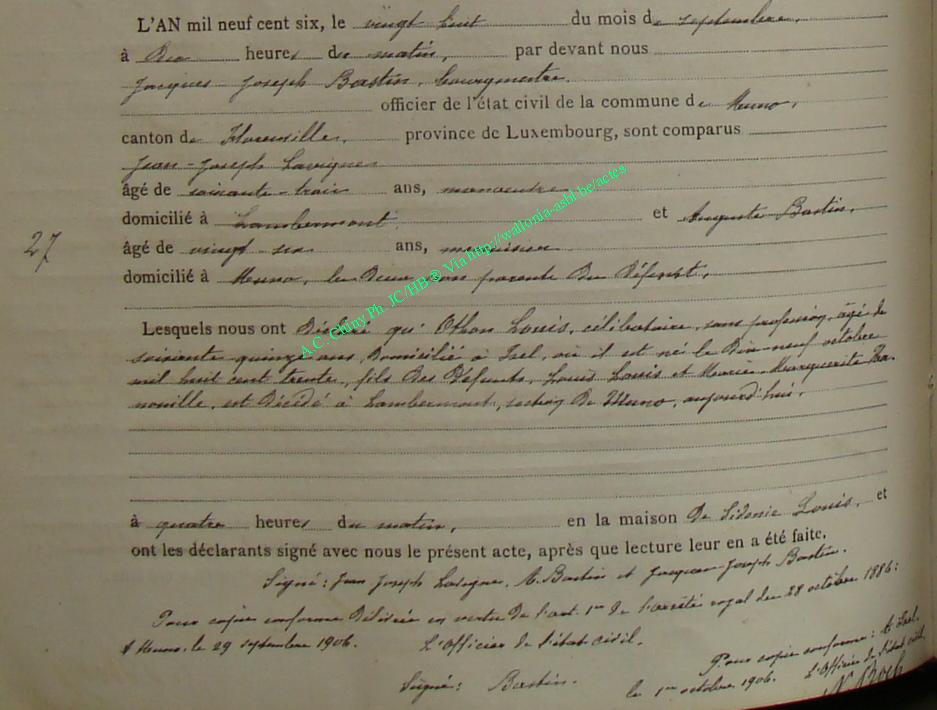 L'AN mil neuf cent six, le vingt huit du mois de septembre,
à dix heures du matin, par devant nous
Jacques Joseph Bastin, bourgmestre
officier de l'état civil de la commune de Muno,
canton de Florenville, province de Luxembourg, sont comparus
Jean-Joseph Lavigne
âgé de soixante-trois ans, manoeuvre
domicilié à Lambermont, et Auguste Bastin,
27 âgé de vingt six ans, menuisier
domicilié à Muno, les deux non parents du défunt,
Lesquels nous ont déclaré qu' Othon Louis, célibataire, sans profession, âgé de
soixante quinze ans, domicilié à Izel, où il est né le dix-neuf octobre
mil huit cent trente, fils des défunts, Louis Louis et Marie-Marguerite
est décédé à Lambermont, section de Muno, aujourd'hui,
à quatre heures du matin, en la maison de Sidonie Louis, et
ont les déclarants signé avec nous le présent acte, après que lecture leur en a été faite.
Signé : Jean Joseph Lavigne, A. Bastin et Jacques-Joseph Bastin.
Pour copie conforme délivrée en vertu de l'art. 1er de l'arrêté royal du 28 octobre 1886 :
A Muno, le 29 septembre 1906. L'Officier de l'état civil.
Signé : Bastin.
Pour copie conforme : A Izel,
le 1er octobre 1906. L'Officier de l'état civil
A.C. Chiny Ph. JC/HB ® Via http://wallonia-asbl.be/actes